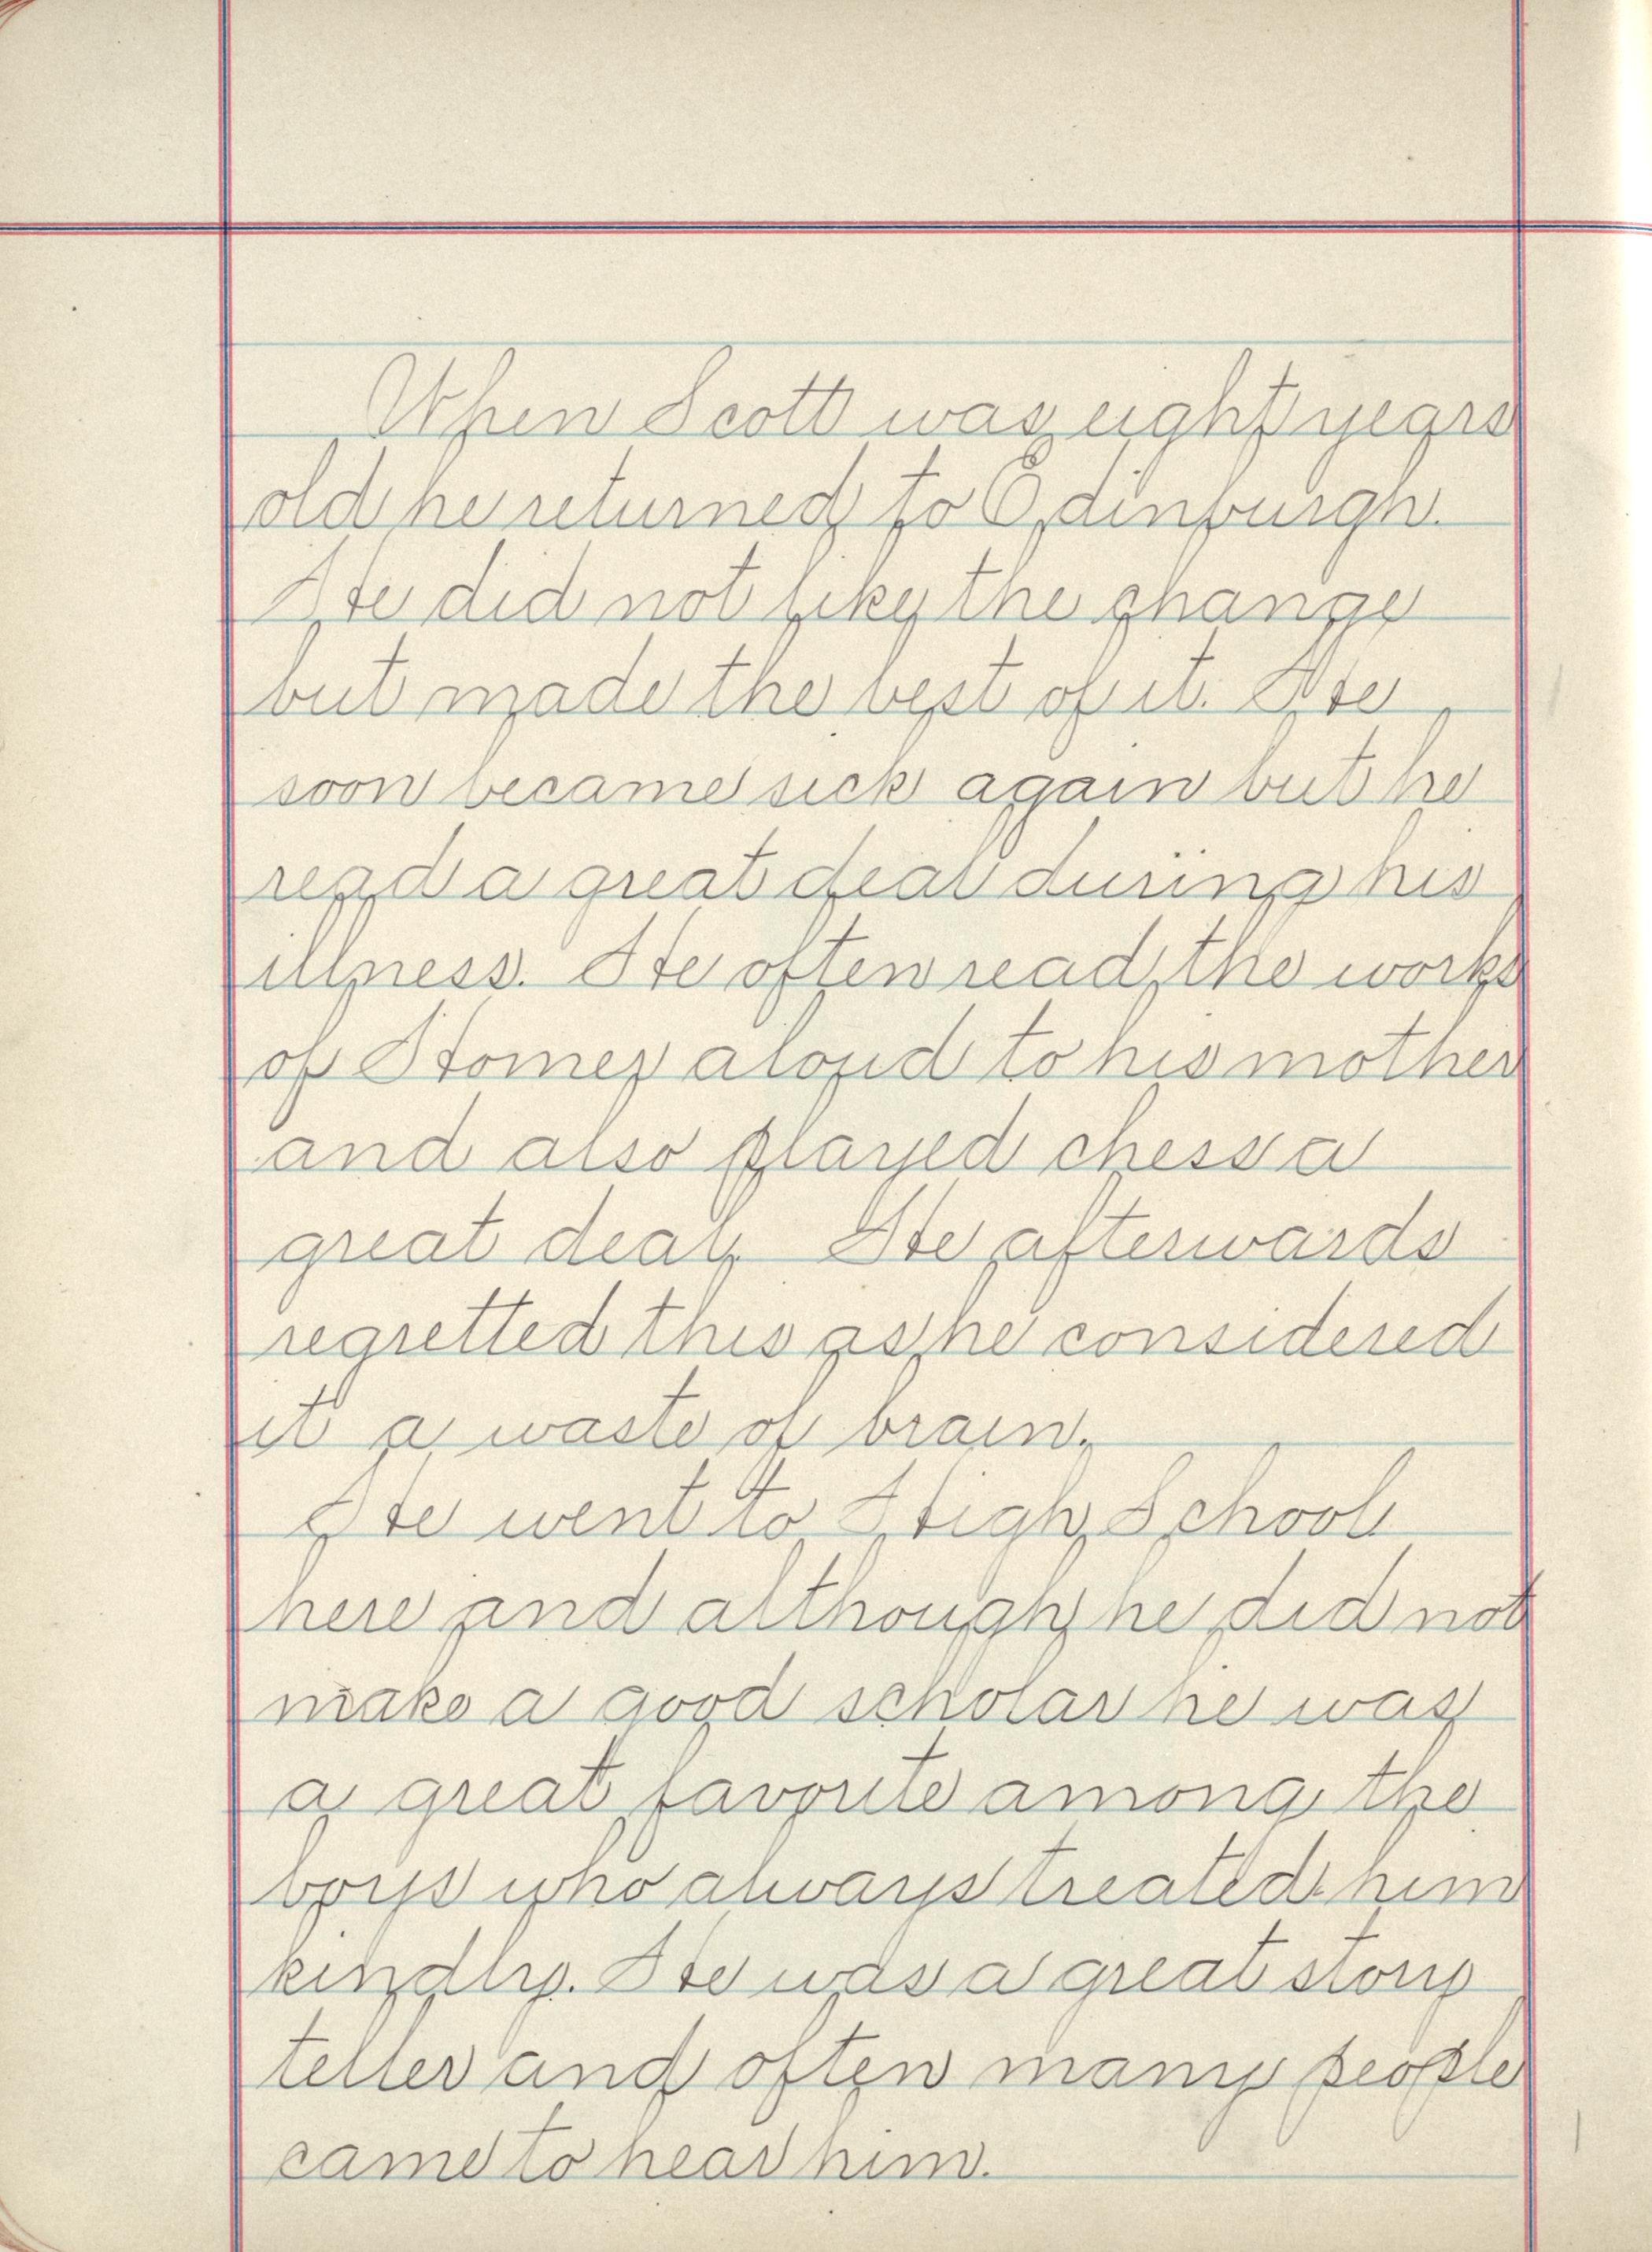 When Scott was eight years
old he returned to Edinburgh.
He did not like the change
but made the best of it. He
soon became sick again but he
read a great deal during his
illness. He often read the works
of Homer aloud to his mother
and also played chess a
great deal. He afterwards
regretted this as he considered
it a waste of brain.
He went to High School
here and although he did not
make a good scholar he was
a great favorite among the
boys who always treated him
kindly. He was a great story
teller and often many people
came to hear him.